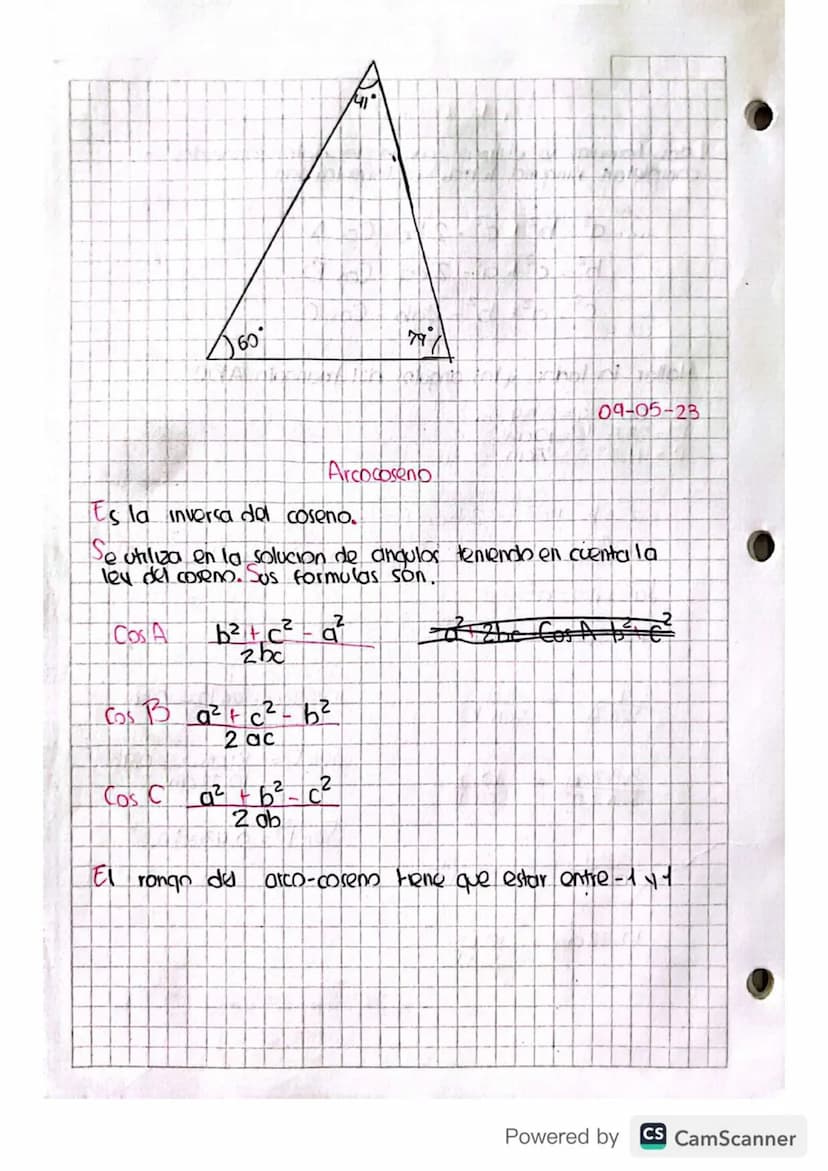 41°
60°
79°
09-05-23
Arcocoseno
Es la inversa del coseno.
Se utiliza en la solucion de angulos teniendo en cuenta la
ley del coseno. Sus formulas son.
Cos A b² + c² - a²
2bc
Cos B a² + c² - b²
2 ac
Cos C a² + b² - c²
2 ab
El rango del arco-coseno tiene que estar entre -1 y 1
Powered by CS CamScanner